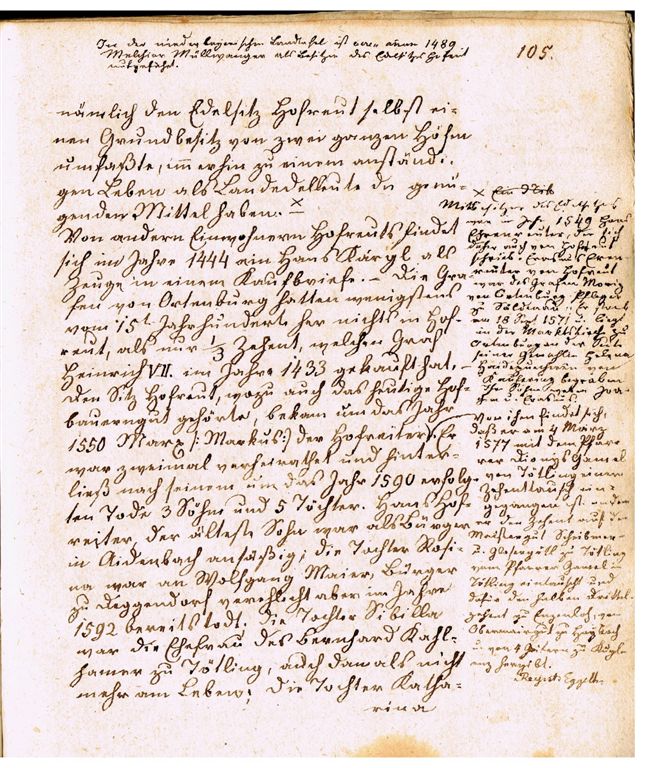 In der niederbayerischen Landtafel ist anno 1489
Melchior Müllwanger als Besitzer des Edelsitzes Hofreut
aufgeführt.
105.
nämlich den Edelsitz Hofreut selbst ei-
nen Grundbesitz von zwei ganzen Höfen
umfaßte, immerhin zu einem anständi-
gen Leben als Landedelleute die genü-
genden Mittel haben. ×
Von andern Einwohnern Hofreuts findet
sich im Jahre 1444 ein Hans Kärgl als
Zeuge in einem Kaufbriefe. – Die Gra-
fen von Ortenburg hatten wenigstens
vom 15t Jahrhundert her nichts in Hof-
reut, als nur 1/3 Zehent, welchen Graf
Heinrich VII. im Jahre 1433 gekauft hat. –
Den Sitz Hofreut, wozu auch das heutige Hof-
bauerngut gehörte, bekam um das Jahr
1550 Marx /: Markus :/ der Hofreiter. Er
war zweimal verheirathet und hinter-
ließ nach seinem um das Jahr 1590 erfolg-
ten Tode 3 Söhne und 5 Töchter. Hans Hof-
reiter, der älteste Sohn war als Bürger
in Aidenbach ansäßig; die Tochter Rosi-
na war an Wolfgang Maier, Bürger
zu Deggendorf verehlicht aber im Jahre
1592 bereits todt. Die Tochter Sibilla
war die Ehefrau des Bernhard Kahl-
hamer zu Tötling, auch damals nicht
mehr am Leben; die Tochter Katha-
rina
×
Mitbesitzer des Edelsitzes
war im Jh. 1549 Hans
der sich
daher auch von Hofreut
schrieb. Erasmus
von Hofreut
war des Grafen Moriz
von Ortenburg Pfleger
zu Söldenau
18 1571 u. liegt
in der Marktskirche zu
Ortenburg an der Seite
seiner Gemahlin
von
begraben
u. Erasmus.
Von ihm findet sich,
daß er am 4 März
1577 mit dem Pfar-
rer Dionys Gämel
von Tötling einen
Zehenttausch ein-
gegangen ist, indem
er den Zehent auf dem
zu Tötling
vom Pfarrer Gämel in
Tötling eintauscht und
dafür den halben Drittel-
zehent zu
zu
u. von 4 Gütern zu
hergibt.